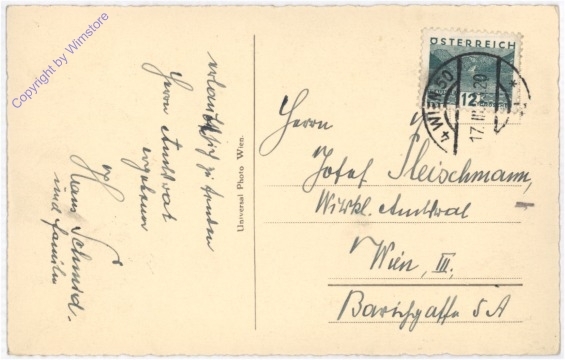 Copyright by Wimstore
erlaubt sich zu senden
Herrn Amtsrat
ergebener
Hans Schmid.
und Familie
Universal Photo Wien.
ÖSTERREICH
12
4 WIEN 50
17.III.
20
Herrn
Josef Fleischmann,
Wirkl. Amtsrat
Wien, III.,
Barichgasse 5A